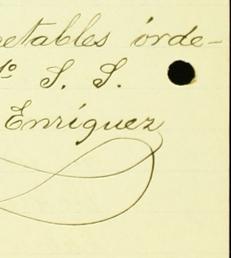 petables órde-
1º S. S.
Enríquez